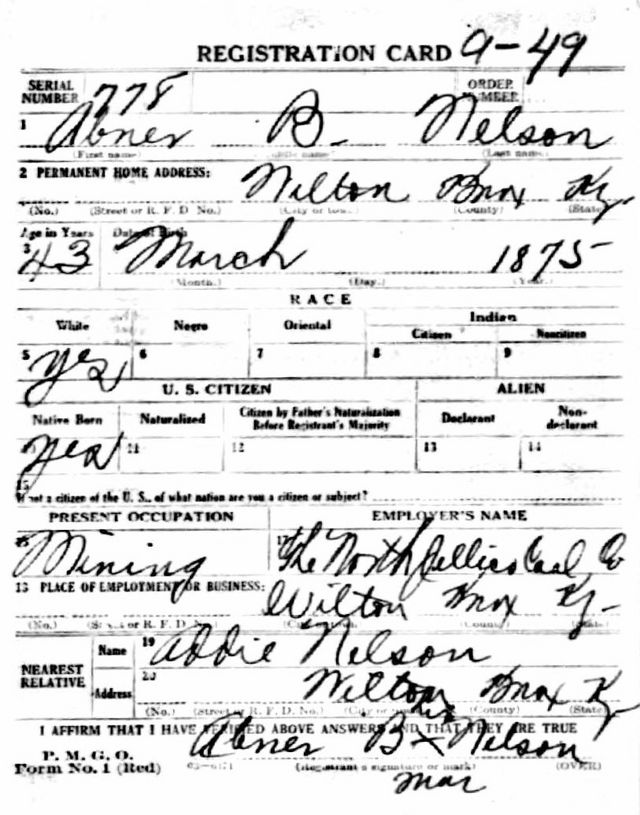 REGISTRATION CARD 9-49
SERIAL NUMBER 778 ORDER NUMBER
1 Abner B. Nelson
(First name) (Middle name) (Last name)
2 PERMANENT HOME ADDRESS:
Wilton Knox Ky.
(No.) (Street or R. F. D. No.) (City or town) (County) (State)
Age in Years Date of Birth
3 43 March 1875
(Month.) (Day.) (Year.)
RACE
White Negro Oriental Indian
Citizen Noncitizen
5 yes 6 7 8 9
U. S. CITIZEN ALIEN
Native Born Naturalized Citizen by Father's Naturalization Before Registrant's Majority Declarant Non-declarant
10 yes 11 12 13 14
15
If not a citizen of the U. S., of what nation are you a citizen or subject?
PRESENT OCCUPATION EMPLOYER'S NAME
16 Mining 17 The North Jellico Coal Co
18 PLACE OF EMPLOYMENT OR BUSINESS:
Wilton Knox Ky.
(No.) (Street or R. F. D. No.) (City or town) (County) (State)
NEAREST RELATIVE
Name 19 Addie Nelson
Address 20 Wilton Knox Ky
(No.) (Street or R. F. D. No.) (City or town) (County) (State)
I AFFIRM THAT I HAVE VERIFIED ABOVE ANSWERS AND THAT THEY ARE TRUE
his
Abner B x Nelson
P. M. G. O.
Form No. 1 (Red) (Registrant's signature or mark) (OVER)
mar